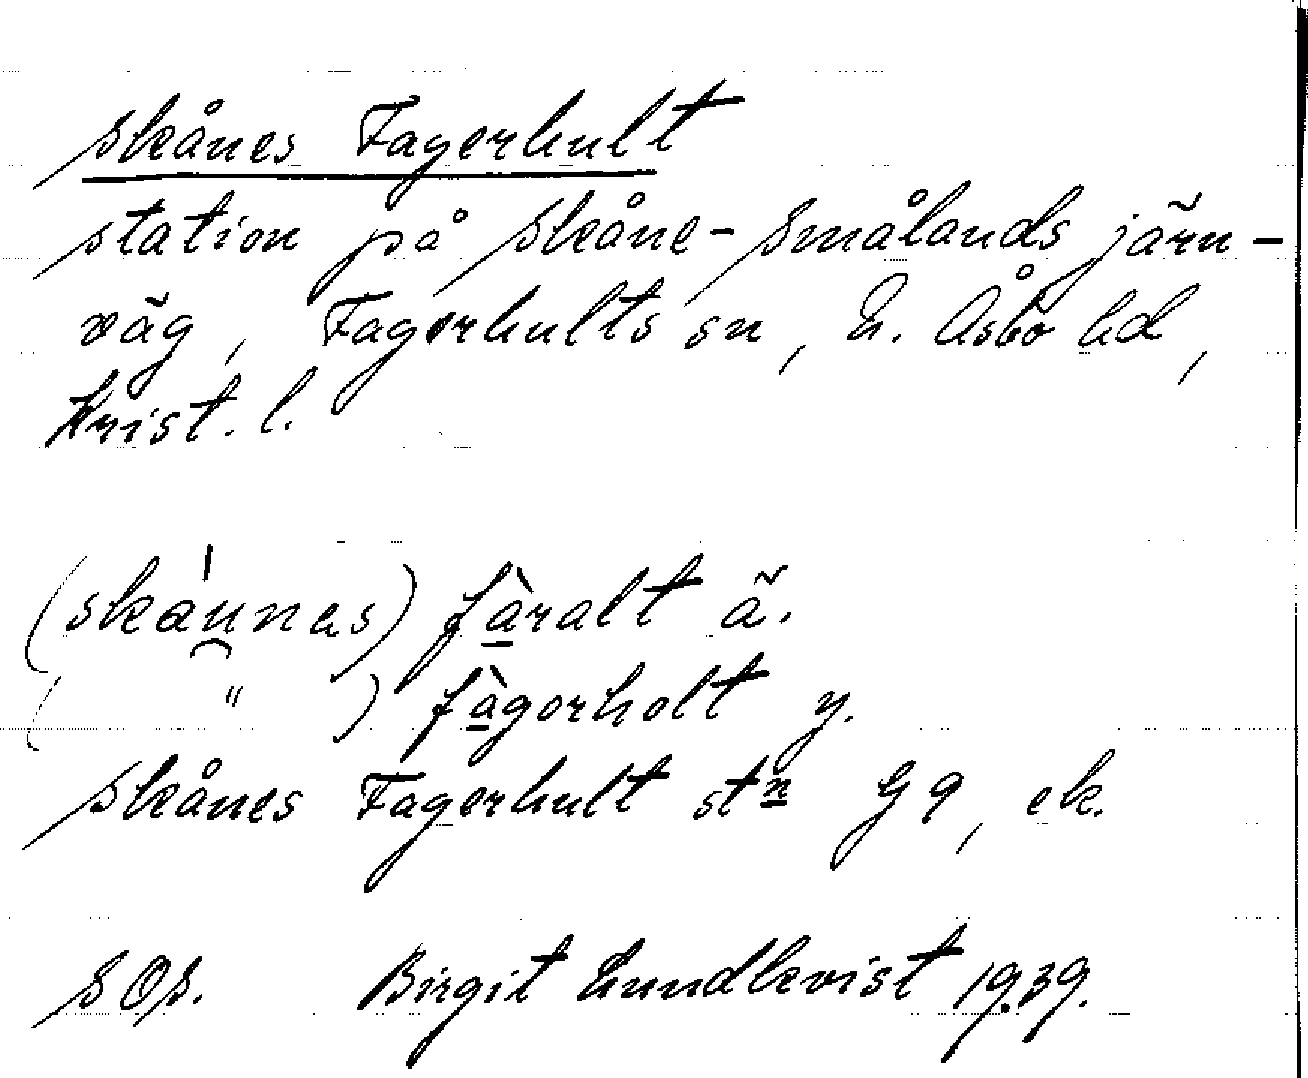 Skånes Fagerhult
station på Skåne-Smålands järn-
väg, Fagerhults sn, N. Åsbo hd,
Krist. l.
(skáu̯nas) fàralt ä.
( " ) fàgorholt y.
Skånes Fagerhult stn G9, ek.
SOS. Birgit Lundkvist 1939.